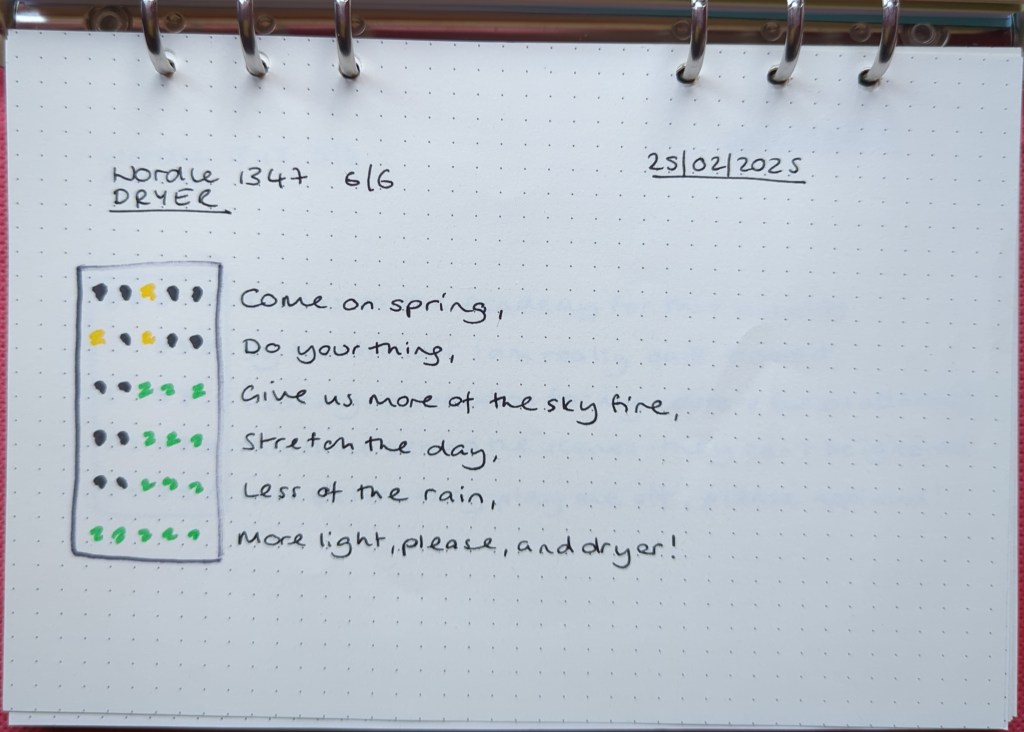 Wordle 1347 6/6
DRYER
25/02/2025
Come on spring,
Do your thing,
Give us more of the sky fire,
Stretch the day,
Less of the rain,
More light, please, and dryer!